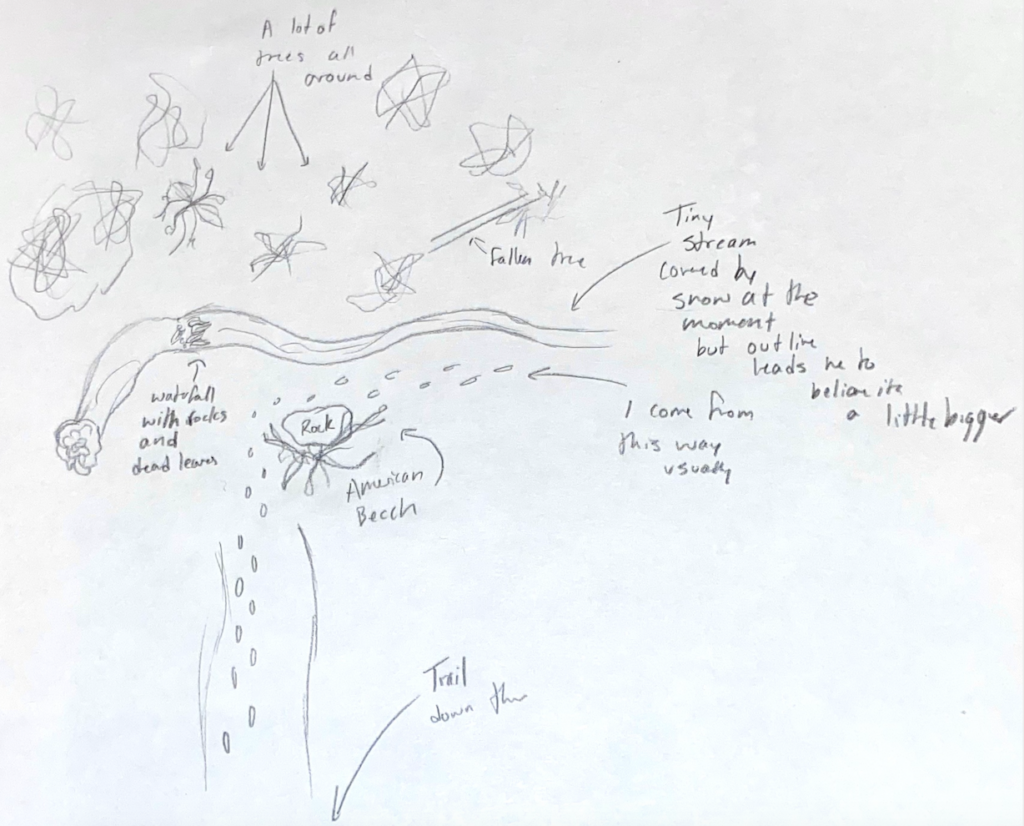 A lot of
trees all
around
Fallen tree
Tiny
stream
covered by
snow at the
moment
but outline
leads me to
believe its
a little bigger
waterfall
with rocks
and
dead leaves
Rock
American
Beech
I come from
this way
usually
Trail
down